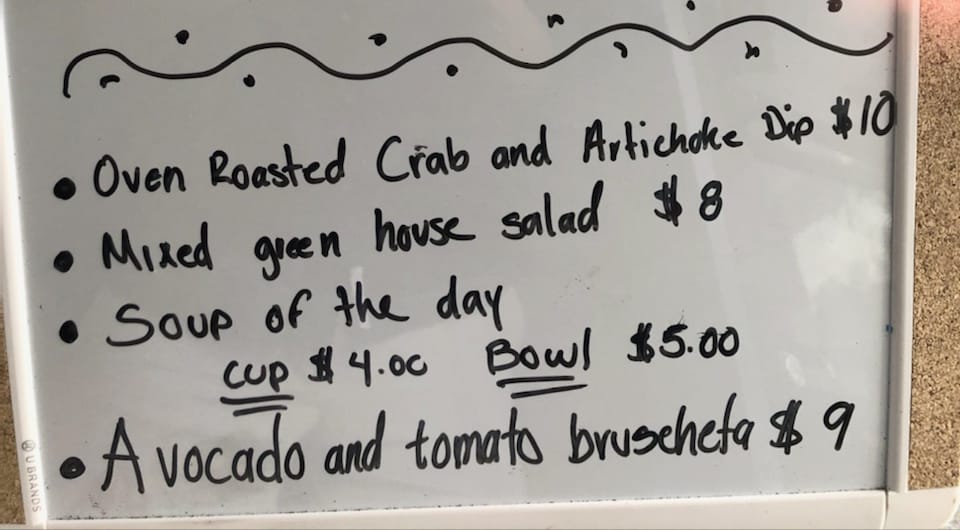 • Oven Roasted Crab and Artichoke Dip $10
• Mixed green house salad $8
• Soup of the day
cup $4.00 Bowl $5.00
• Avocado and tomato bruscheta $9
U BRANDS